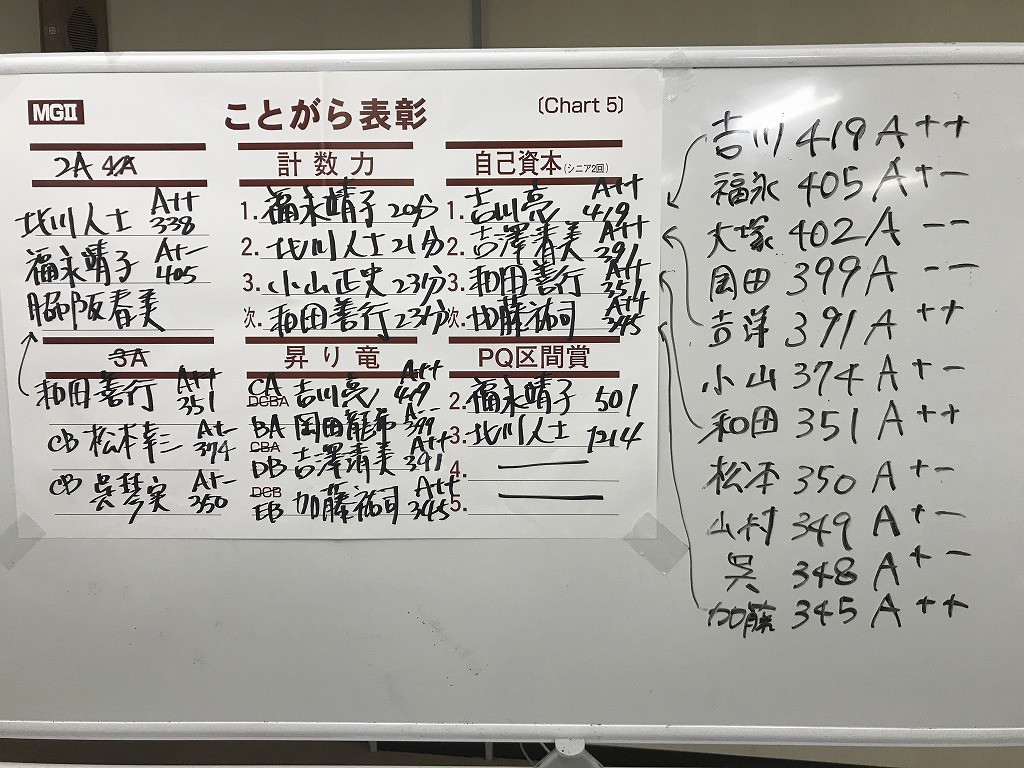 MGII
ことがら表彰
〔Chart 5〕
2A 4A
北川人士 A++ 338
福永靖子 A+- 405
脇阪春美
3A
和田善行 A++ 351
CB 松本幸三 A+- 374
CB 呉 A+- 350
計数力
1. 福永靖子 20分
2. 北川人士 21分
3. 小山正史 23分
次. 和田善行 23分
昇り竜
CA DCBA 吉川亮 A++ 419
BA 岡田龍布 A-- 399
CBA
DB 吉澤清美 A++ 391
DCB
EB 加藤祐司 A++ 345
自己資本(シニア2回)
1. 吉川亮 A++ 419
2. 吉澤清美 A++ 391
3. 和田善行 A++ 351
次. 加藤祐司 A++ 345
PQ区間賞
2. 福永靖子 501
3. 北川人士 1214
4.
5.
吉川 419 A++
福永 405 A+-
大塚 402 A--
岡田 399 A--
吉洋 391 A++
小山 374 A+-
和田 351 A++
松本 350 A+-
山村 349 A+-
呉 348 A+-
加藤 345 A++